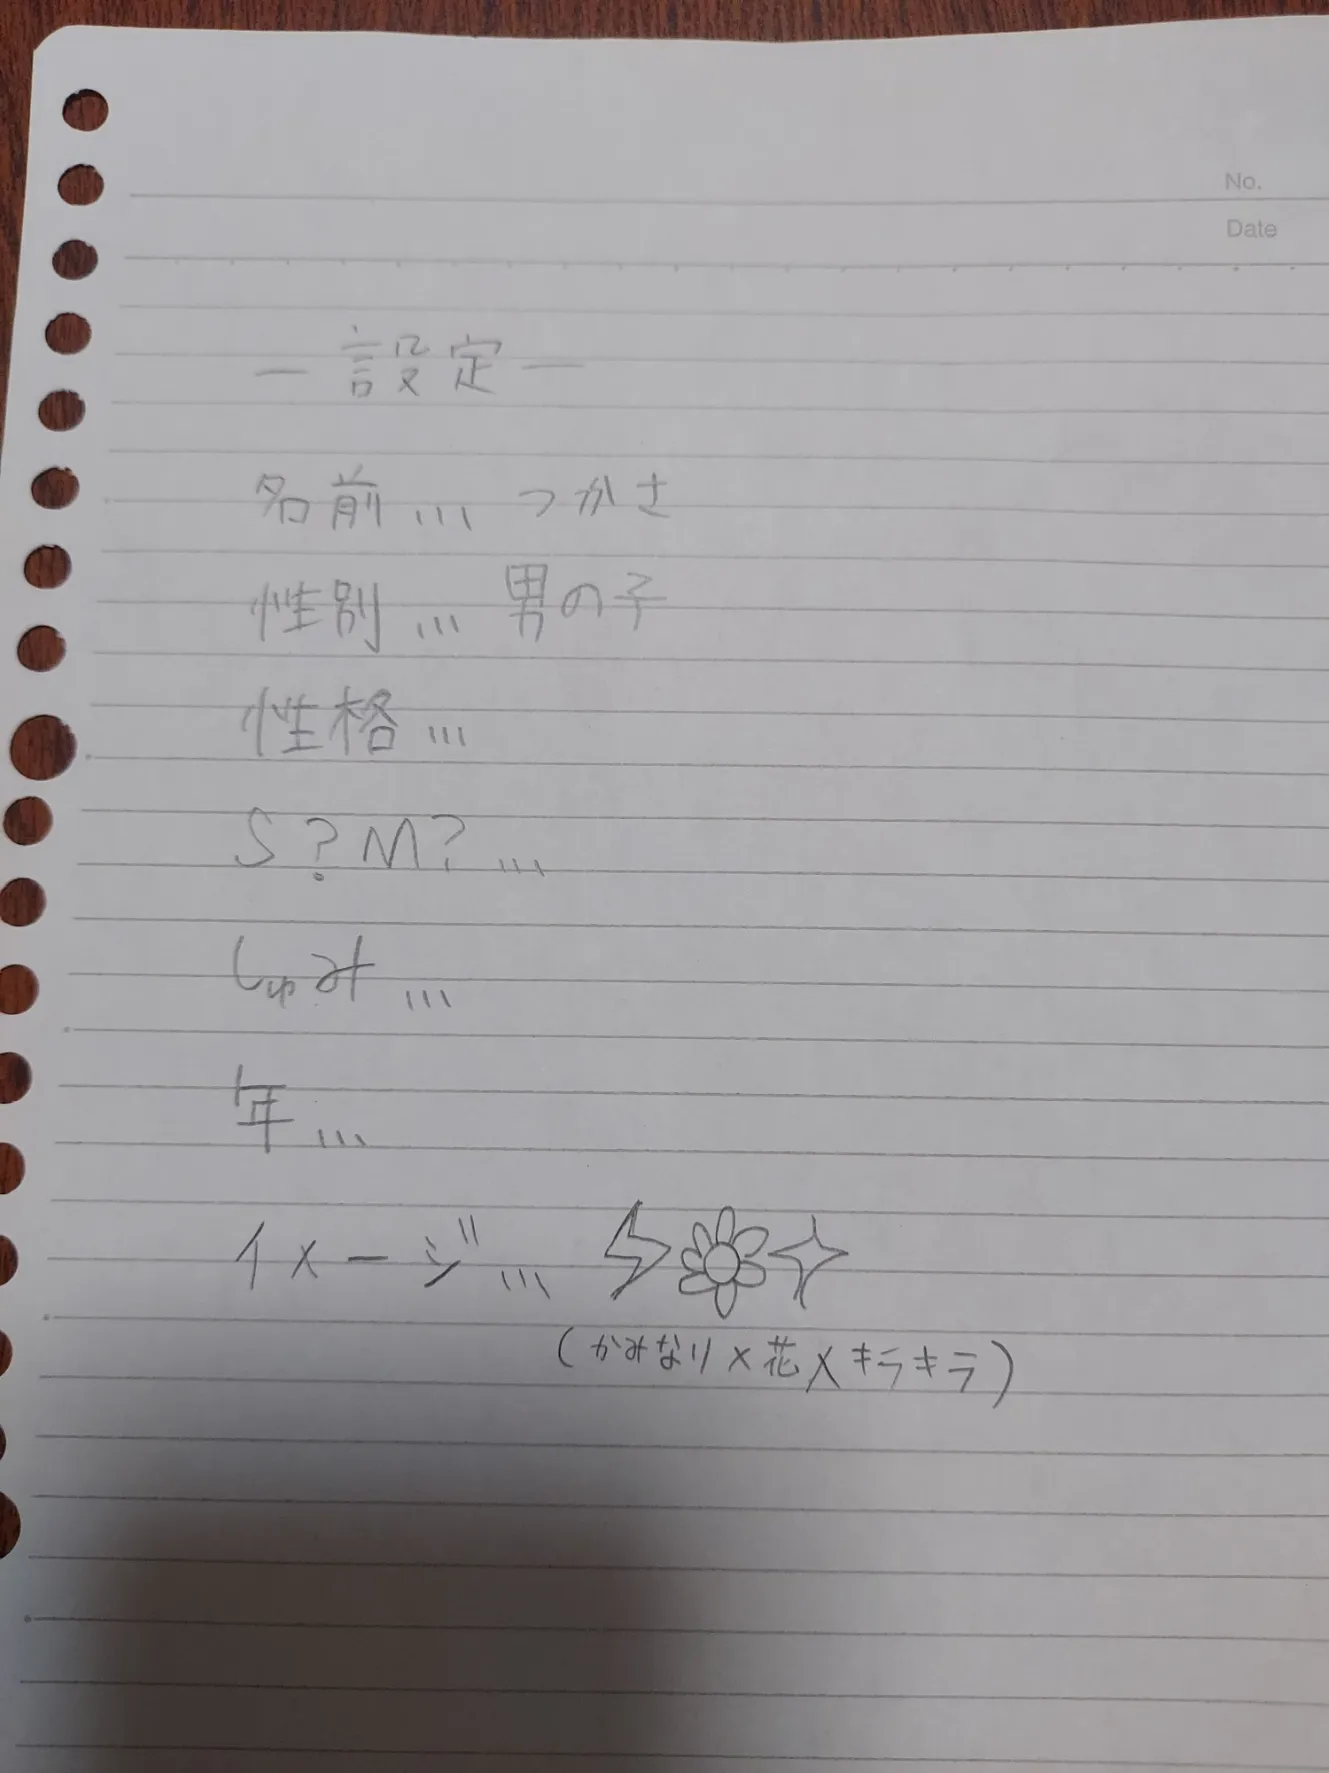 No.
Date
ー設定ー
名前… つかさ
性別… 男の子
性格…
S?M?…
しゅみ…
年…
イメージ…
(かみなり×花×キラキラ)